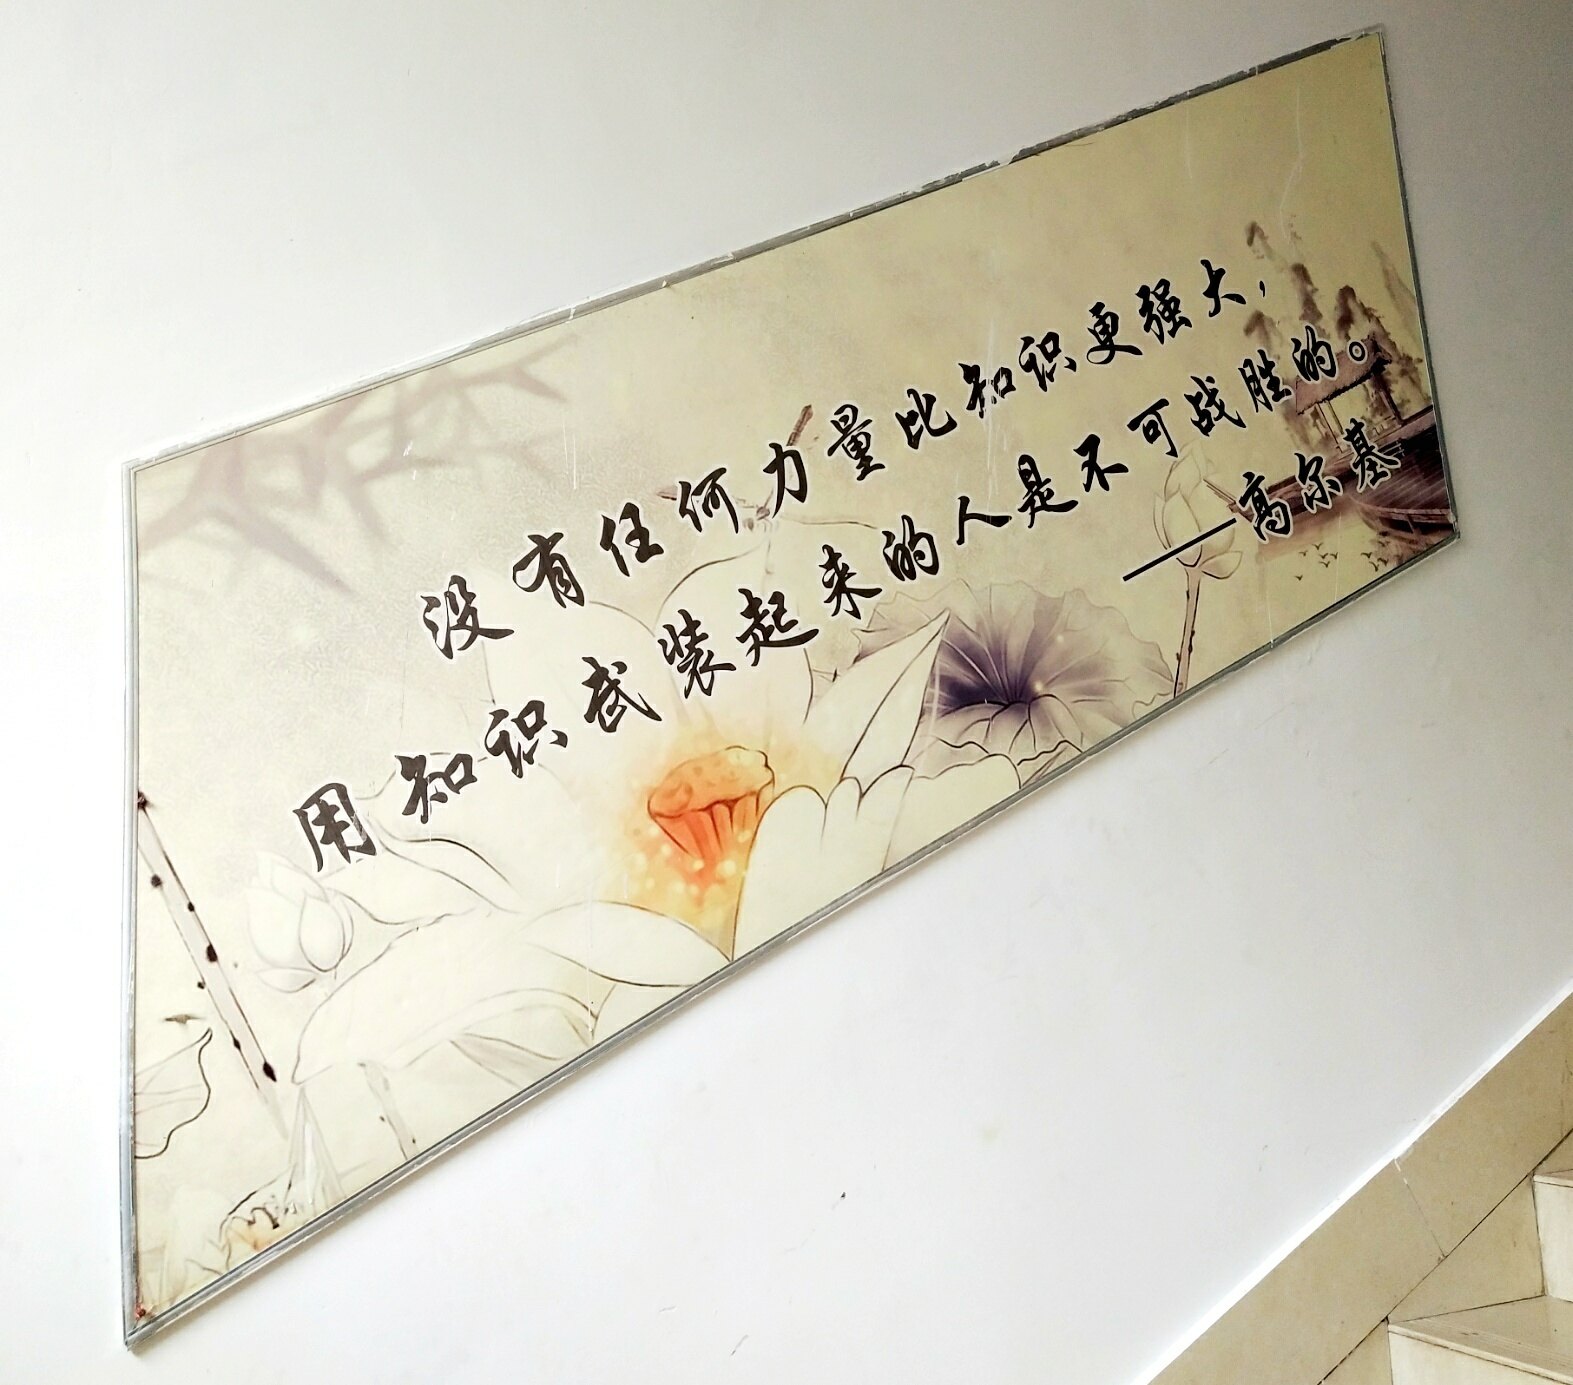 没有任何力量比知识更强大，
用知识武装起来的人是不可战胜的。
——高尔基